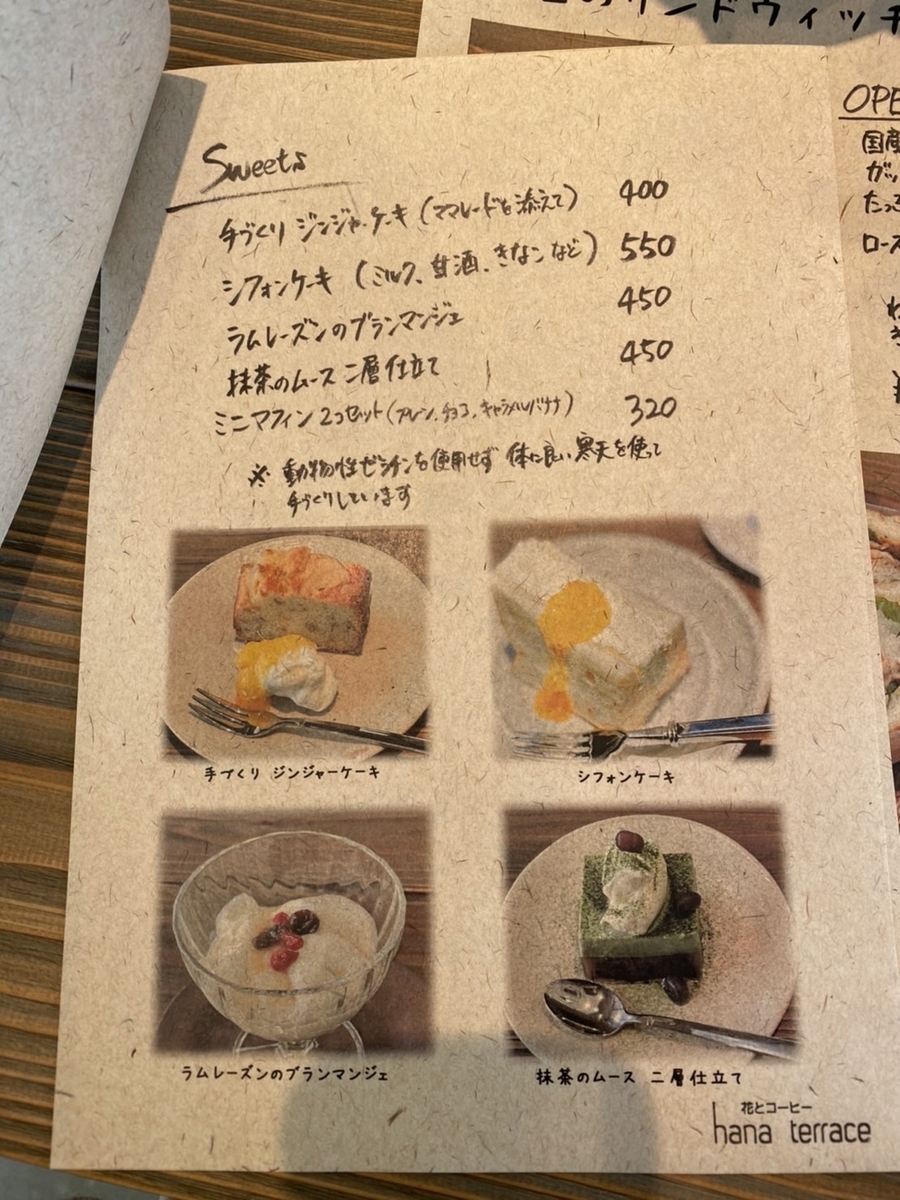 のサンドウィッチ
Sweets
手づくり ジンジャーケーキ (ママレードを添えて) 400
シフォンケーキ (ミルク、甘酒、きなこ など) 550
ラムレーズンのブランマンジェ 450
抹茶のムース 二層仕立て 450
ミニマフィン 2コセット (プレーン、チョコ、キャラメルバナナ) 320
※ 動物性ゼラチンを使用せず 体に良い 寒天を使って
手づくりしています
手づくり ジンジャーケーキ
シフォンケーキ
ラムレーズンのブランマンジェ
抹茶のムース 二層仕立て
花とコーヒー
hana terrace
OPE
国産
ガッ
たっ
ロース